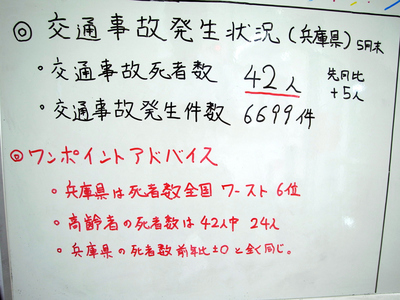 ◎ 交通事故発生状況 (兵庫県) 5月末
・交通事故死者数 42人 先月比 +5人
・交通事故発生件数 6699件
◎ワンポイントアドバイス
・兵庫県は死者数全国 ワースト 6位
・高齢者の死者数は 42人中 24人
・兵庫県の死者数 前年比 ±0 と全く同じ。